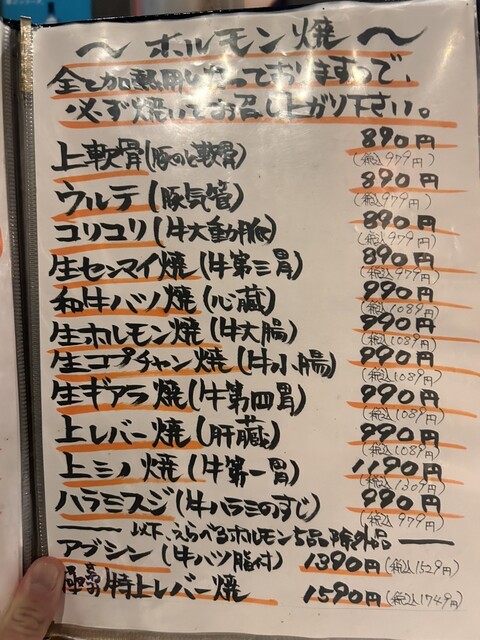 〜 ホルモン焼 〜
全て加熱用となっておりますので、
必ず焼いてお召し上がり下さい。
上軟骨(豚のど軟骨) 890円 (税込979円)
ウルテ(豚気管) 890円 (税込979円)
コリコリ(牛大動脈) 890円 (税込979円)
生センマイ焼(牛第三胃) 890円 (税込979円)
和牛ハツ焼(心臓) 990円 (税込1089円)
生ホルモン焼(牛大腸) 990円 (税込1089円)
生コプチャン焼(牛小腸) 990円 (税込1089円)
生ギアラ焼(牛第四胃) 990円 (税込1089円)
上レバー焼(肝臓) 990円 (税込1089円)
上ミノ焼(牛第一胃) 1190円 (税込1309円)
ハラミスジ(牛ハラミのすじ) 990円 (税込979円)
以下、えらべるホルモン5品除外品
アブシン(牛ハツ脂付) 1390円 (税込1529円)
特上レバー焼 1590円 (税込1749円)